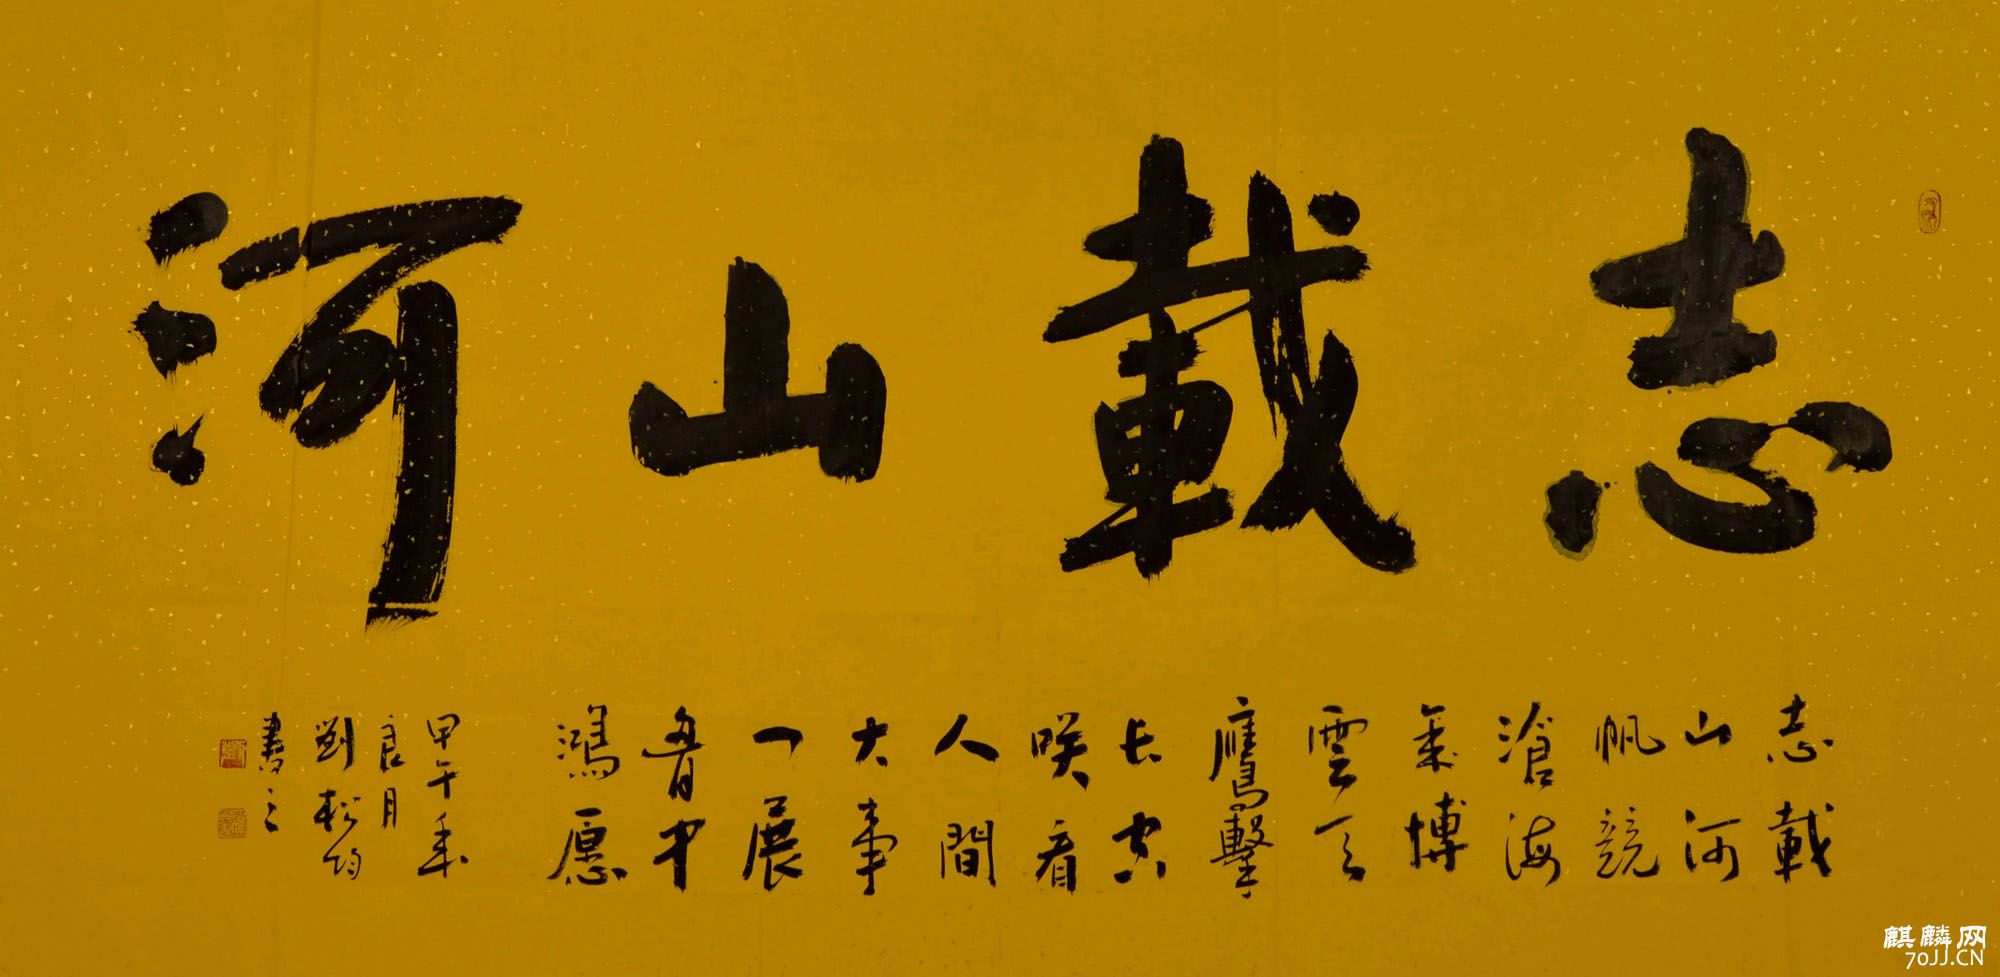 志載山河
志載
山河
帆競
滄海
氣博
雲天
鷹擊
长空
咲看
人間
大事
一展
胷中
鴻愿
甲午年
良月
劉松
書之
麒麟网
70JJ.CN